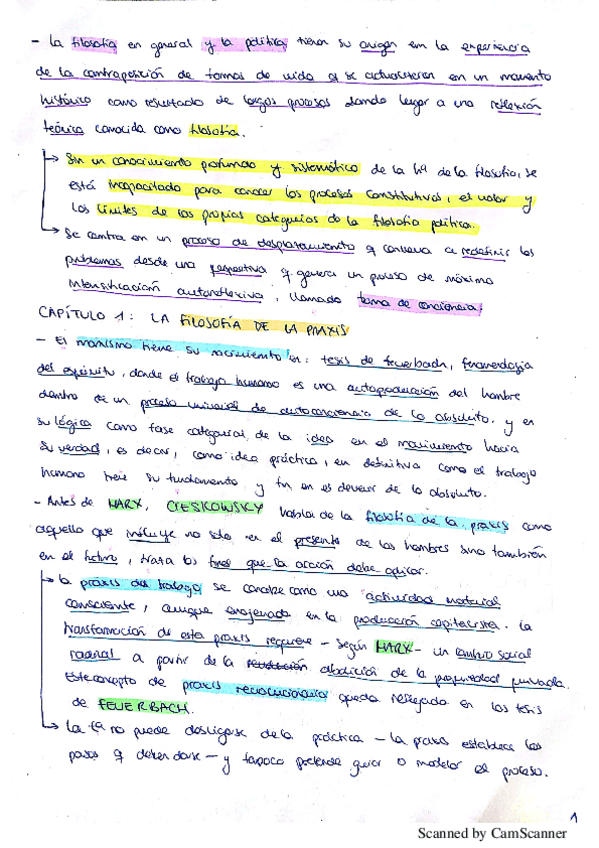 - La filosofía en general y la política tienen su origen en la experiencia
de la contraposición de formas de vida q se actualizan en un momento
histórico como resultado de largos procesos dando lugar a una reflexión
teórica conocida como filosofía.
↳ Sin un conocimiento profundo y sistemático de la hª de la filosofía, se
está incapacitado para conocer los procesos constitutivos, el valor y
los límites de las propias categorías de la filosofía política.
↳ Se centra en un proceso de desplazamiento q conlleva a redefinir los
problemas desde una perspectiva q genera un proceso de máxima
intensificación autorreflexiva, llamado toma de conciencia.
CAPÍTULO 1: LA FILOSOFÍA DE LA PRAXIS
- El marxismo tiene su nacimiento en: tesis de feuerbach, fenomenología
del espíritu, donde el trabajo humano es una autoproducción del hombre
dentro de un proceso universal de autoconciencia de lo absoluto. y en
su lógica como fase categorial de la idea en el movimiento hacia
su verdad, es decir, como idea práctica, en definitiva como el trabajo
humano tiene su fundamento y fin en es devenir de lo absoluto.
- Antes de MARX, CIESKOWSKY habla de la filosofía de la praxis como
aquello que influye no solo en el presente de los hombres sino también
en el futuro, trata los fines que la acción debe
↳ la praxis del trabajo se concibe como una actividad material
consciente, aunque enajenada en la producción capitalista. La
transformación de esta praxis requiere - según MARX - un cambio social
radical a partir de la abolición de la propiedad privada.
Este concepto de praxis revolucionaria queda reflejada en las tesis
de FEUERBACH.
↳ La tª no puede desligarse de la práctica - la praxis establece los
pasos q deben darse - y tampoco pretende guiar o modelar el proceso.
1
Scanned by CamScanner